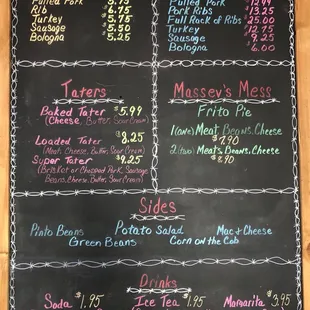 Pulled Pork 5.75
Rib 6.75
Turkey 5.75
Sausage 5.50
Bologna 5.25
Pulled Pork
Pork Ribs 13.25
Full Rack of Ribs 25.00
Turkey 12.75
Sausage 9.25
Bologna 6.00
Taters
Baked Tater $5.99
(Cheese, Butter, Sour Cream)
Loaded Tater $8.25
(Meat, Cheese, Butter, Sour Cream)
Super Tater $9.25
(Brisket or Chopped Pork, Sausage
Beans, Cheese, Butter, Sour Cream)
Massey's Mess
Frito Pie
1(one) Meat, Beans, Cheese
$7.90
2(two) Meats, Beans, Cheese
$8.90
Sides
Pinto Beans Potato Salad Mac & Cheese
Green Beans Corn on the Cob
Drinks
Soda $1.95 Ice Tea $1.95 Margarita $3.95